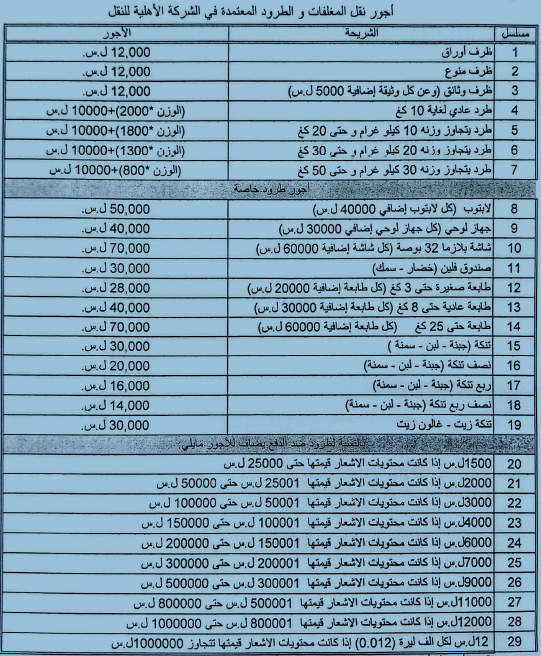 أجور نقل المغلفات و الطرود المعتمدة في الشركة الأهلية للنقل
مسلسل الشريحة الأجور
1 ظرف أوراق 12,000 ل.س.
2 ظرف منوع 12,000 ل.س.
3 ظرف وثائق (وعن كل وثيقة إضافية 5000 ل.س) 12,000 ل.س.
4 طرد عادي لغاية 10 كغ (الوزن *2000)+10000 ل.س
5 طرد يتجاوز وزنه 10 كيلو غرام و حتى 20 كغ (الوزن *1800)+10000 ل.س
6 طرد يتجاوز وزنه 20 كيلو غرام و حتى 30 كغ (الوزن *1300)+10000 ل.س
7 طرد يتجاوز وزنه 30 كيلو غرام و حتى 50 كغ (الوزن *800)+10000 ل.س
أجور طرود خاصة
8 لابتوب (كل لابتوب إضافي 40000 ل.س) 50,000 ل.س.
9 جهاز لوحي (كل جهاز لوحي إضافي 30000 ل.س) 40,000 ل.س.
10 شاشة بلازما 32 بوصة (كل شاشة إضافية 60000 ل.س) 70,000 ل.س.
11 صندوق فلين (خضار - سمك) 30,000 ل.س.
12 طابعة صغيرة حتى 3 كغ (كل طابعة إضافية 20000 ل.س) 28,000 ل.س.
13 طابعة عادية حتى 8 كغ (كل طابعة إضافية 30000 ل.س) 40,000 ل.س.
14 طابعة حتى 25 كغ (كل طابعة إضافية 60000 ل.س) 70,000 ل.س.
15 تنكة (جبنة - لبن - سمنة ) 30,000 ل.س.
16 نصف تنكة (جبنة - لبن - سمنة) 20,000 ل.س.
17 ربع تنكة (جبنة - لبن - سمنة) 16,000 ل.س.
18 نصف ربع تنكة (جبنة - لبن - سمنة) 14,000 ل.س.
19 تنكة زيت - غالون زيت 30,000 ل.س.
بالنسبة لطرود ضد الدفع يضاف للأجور مايلي:
20 1500ل.س إذا كانت محتويات الاشعار قيمتها حتى 25000 ل.س
21 2000ل.س إذا كانت محتويات الاشعار قيمتها 25001 ل.س حتى 50000 ل.س
22 3000ل.س إذا كانت محتويات الاشعار قيمتها 50001 ل.س حتى 100000 ل.س
23 4000ل.س إذا كانت محتويات الاشعار قيمتها 100001 ل.س حتى 150000 ل.س
24 6000ل.س إذا كانت محتويات الاشعار قيمتها 150001 ل.س حتى 200000 ل.س
25 7000ل.س إذا كانت محتويات الاشعار قيمتها 200001 ل.س حتى 300000 ل.س
26 9000ل.س إذا كانت محتويات الاشعار قيمتها 300001 ل.س حتى 500000 ل.س
27 11000ل.س إذا كانت محتويات الاشعار قيمتها 500001 ل.س حتى 800000 ل.س
28 12000ل.س إذا كانت محتويات الاشعار قيمتها 800001 ل.س حتى 1000000 ل.س
29 12ل.س لكل الف ليرة (0.012) إذا كانت محتويات الاشعار قيمتها تتجاوز 1000000ل.س